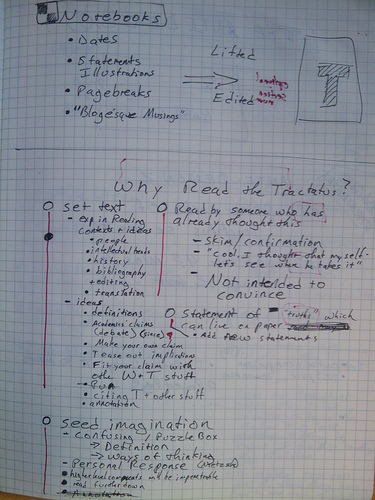 Notebooks
• Dates
• Statements
Illustrations
• Pagebreaks
• "Blogesque Musings"
Lifted
Edited
T
Why Read the Tractatus?
set text
- exp in Reading
contexts + ideas
• people
• intellectual texts
• history
• bibliography
+ editing
• translation
- ideas
• definitions
• Academic claims
(debate)
• Make your own claim
• Tease out implications
• Fit your claim with
other W + T stuff
- Fun
• citing T + other stuff
• annotation
Read by someone who has
already thought this
- Skim/confirmation
- "Cool. I thought that myself-
let's see where he takes it"
- Not intended to
convince
Statement of "truths" which
can live on paper
• Add new statements
seed imagination
- Confusing / Puzzle Box
→ Definition
→ ways of thinking
- Personal Response
• higher level comments will be impenetrable
• read further down
• Annotation